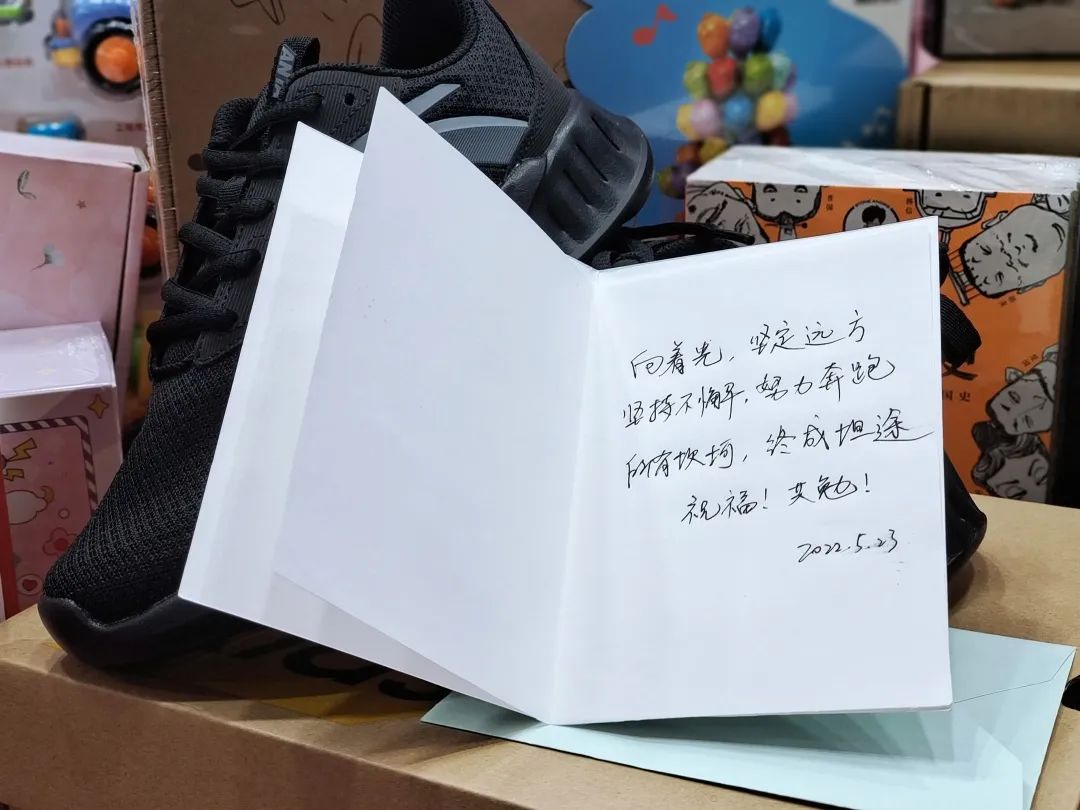 向着光，坚定远方
坚持不懈，努力奔跑
所有坎坷，终成坦途
祝福！共勉！
2022.5.23
国史